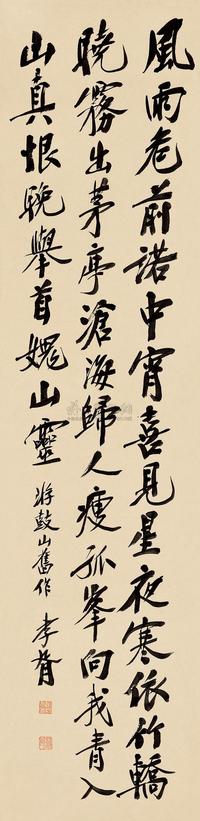 風雨危前諾中宵喜見星夜寒依竹轎
曉霧出茅亭滄海歸人瘦孤峯向我青入
山真恨晚舉首媿山靈 游鼓山舊作 孝胥